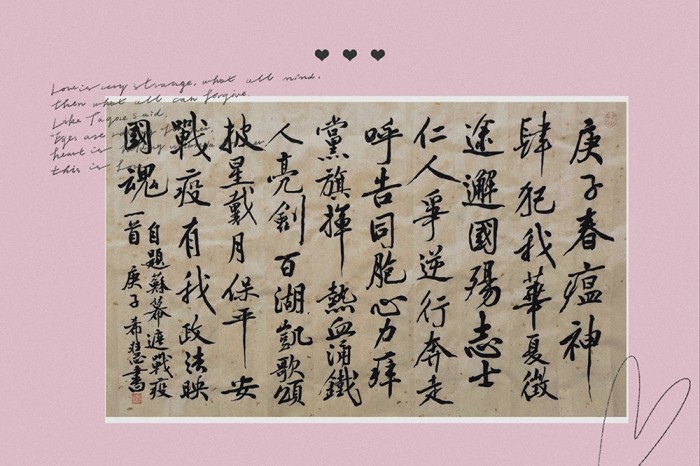 Love is very strange, what all mind,
then what all can forgive.
Like Tagore said,
"Eyes are
heart is
this is
庚子春瘟神
肆犯我華夏徵
途邂國殤志士
仁人爭逆行奔走
呼告同胞心力
黨旗揮熱血涌鐵
人亮劍百湖凱歌頌
披星戴月保平安
戰疫有我政法映
國魂
自題蘇幕遮戰疫
一首 庚子 希書